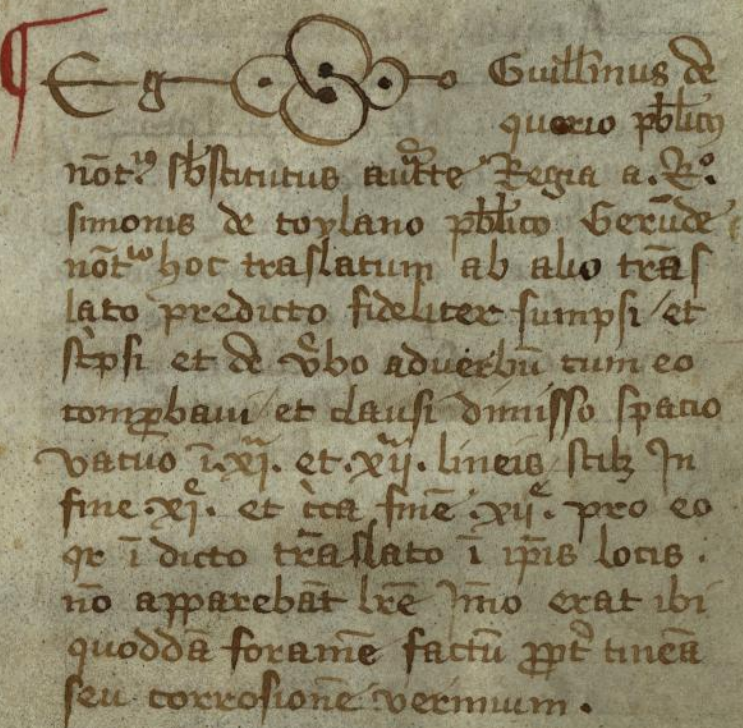 ¶ Eg Guill̅mus de
querio pb̅licꝰ
not̅ꝰ sb̅stitutus auct̅te Regia a. R̊.
simonis de toylano pb̅lico Gerun̅de
not̅o hoc traslatum ab alio tra̅s
lato predicto fideliter sumpsi / et
sc̅psi et de v̅bo adverbu̅ cum eo
comꝓbavi / et clausi dimisso spacio
vacuo i̅ .xj.ª et .xij.ª lineis scilꝫ In
fine .xj.ᵉ et ci̅ca fine̅ .xij.ᵉ pro eo
qr i̅ dicto tra̅slato i̅ ip̅is locis .
no̅ appareba̅t lr̅e Im̅o erat ibi
quodda̅ forame̅ factu̅ ꝓpt̅ tinea̅
seu corrosione̅ vermium .